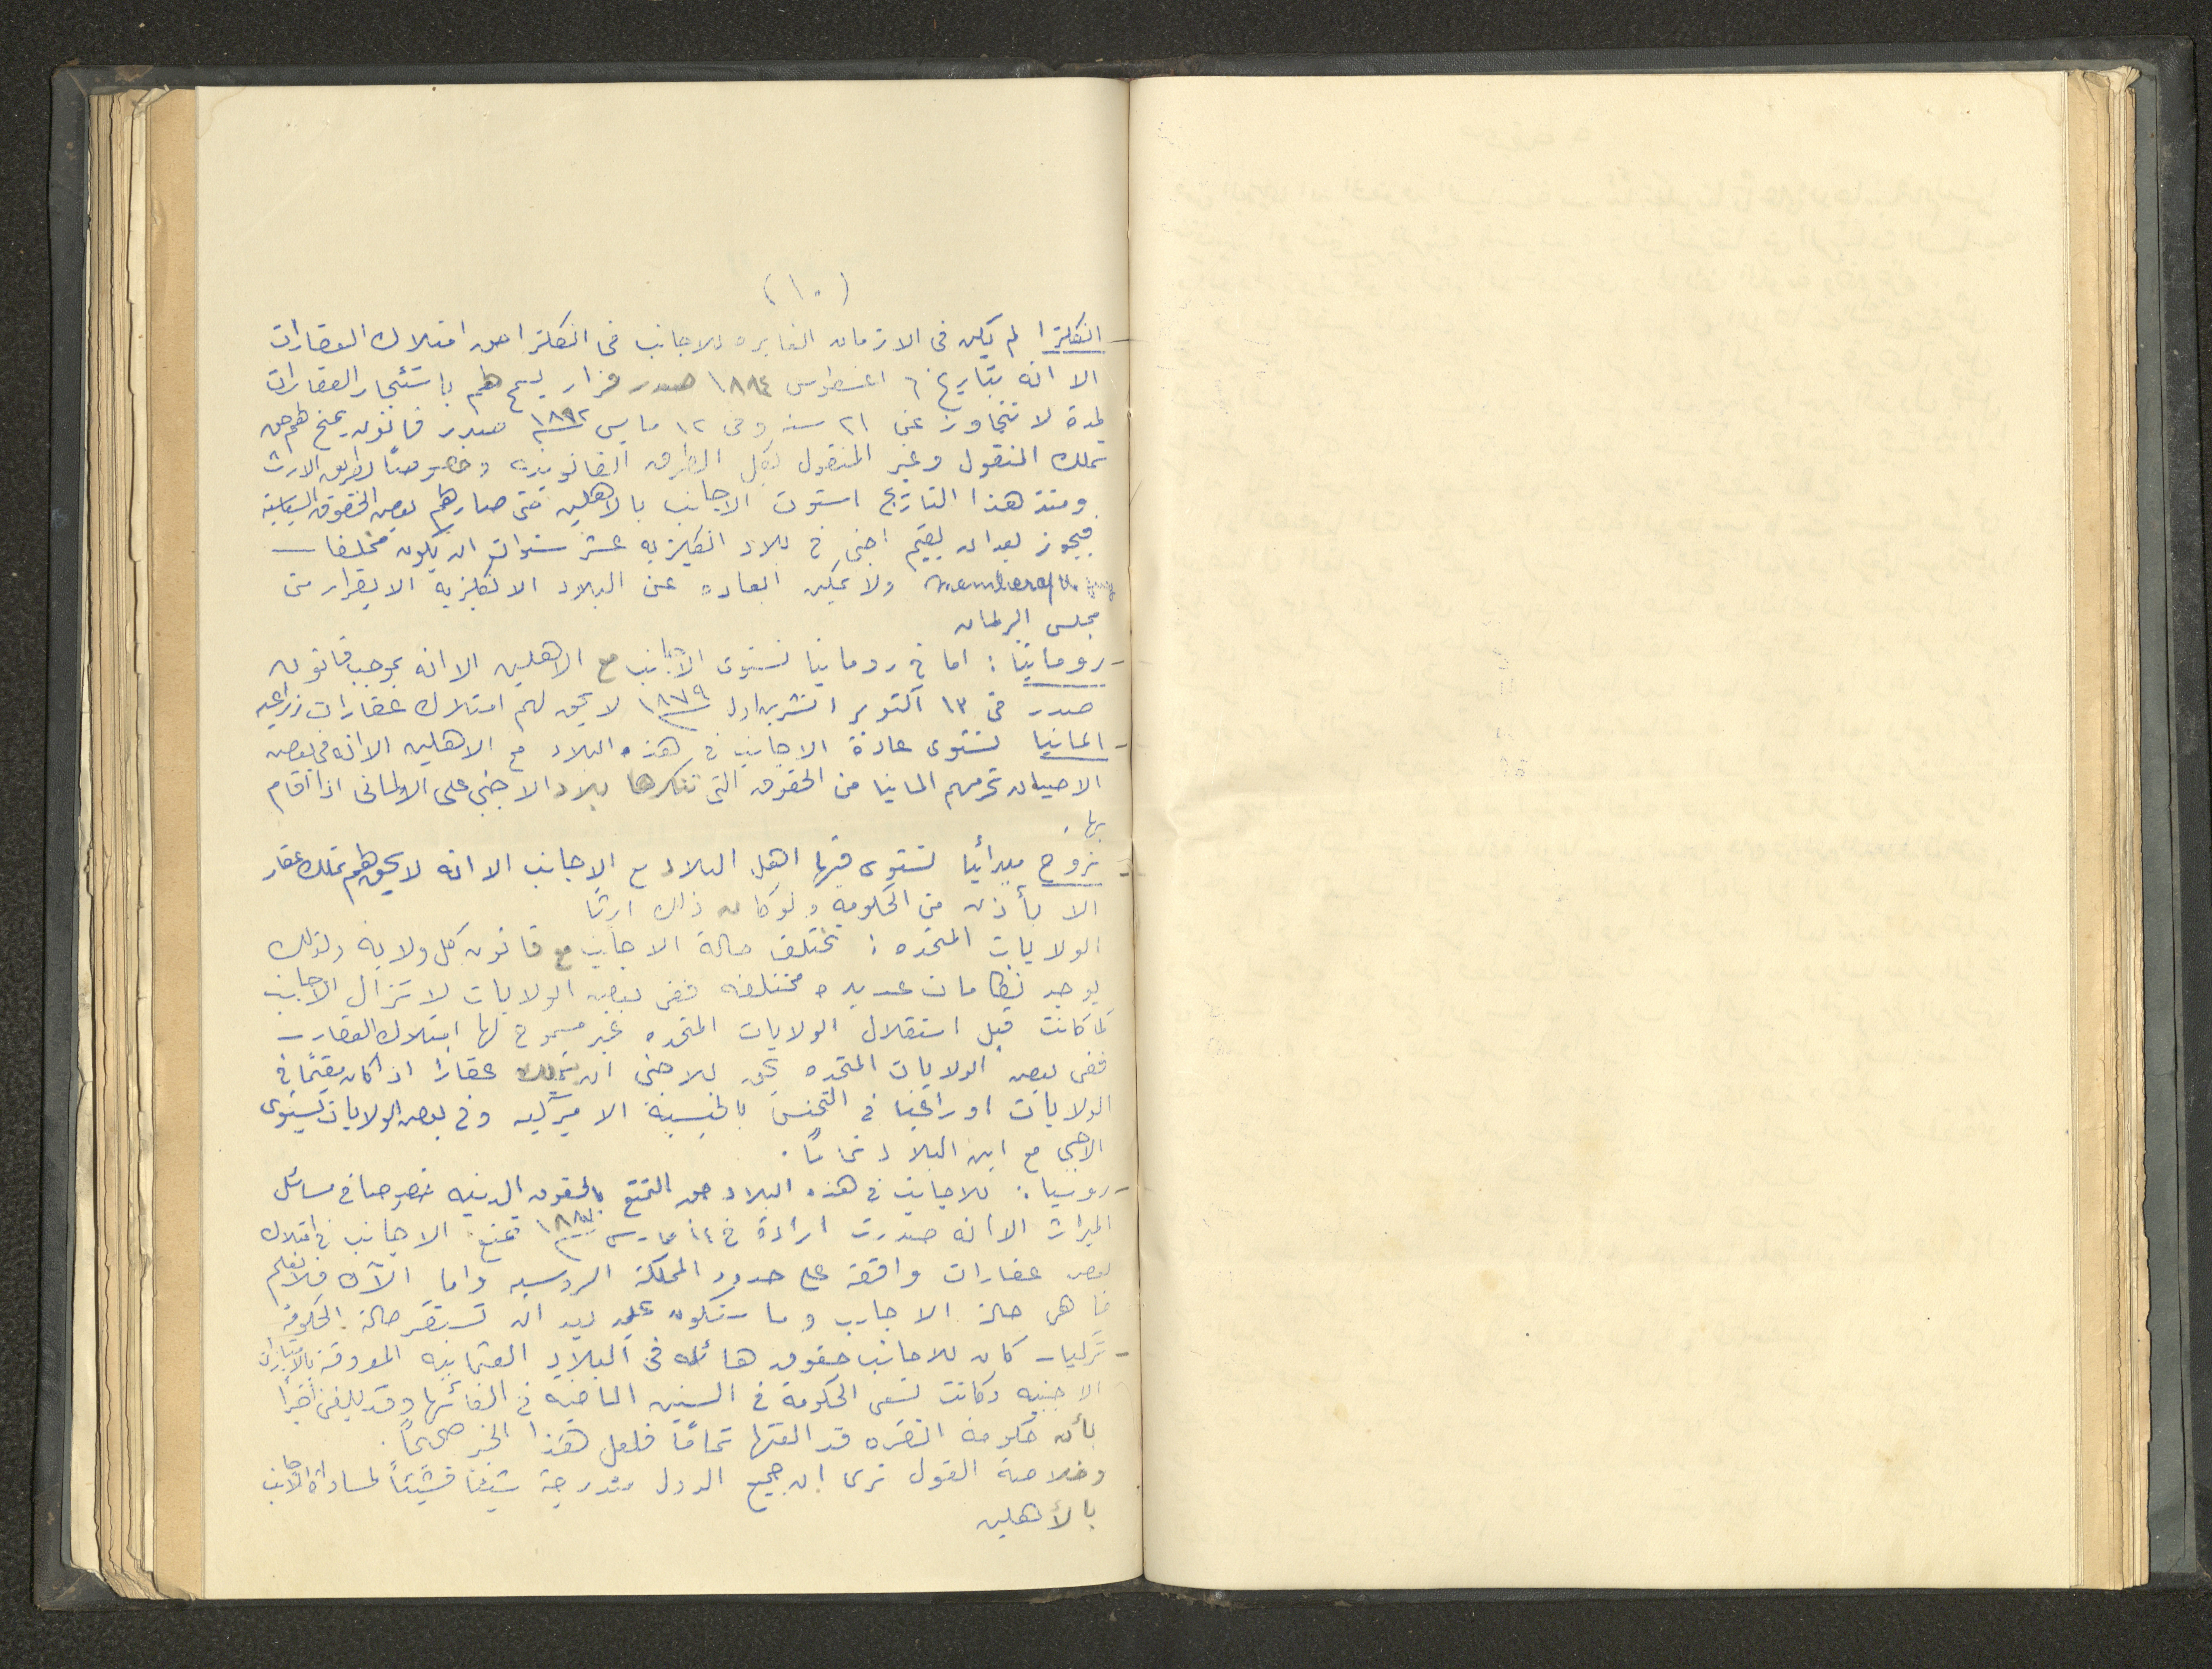 (١٠)
- انكلترا لم يكن فى الازمان الغابره للاجانب فى انكلترا حق امتلاك العقارات
الا انه بتاريخ ٦ اغسطوس ١٨٨٤ صدر قرار يسمح لهم باستئجار العقارات
لمدة لا تتجاوز عن ٢١ سنه وفى ١٢ مايس ١٨٩٢ صدر قانون يمنح لهم حق
تملك المنقول وغير المنقول بكل الطرق القانونيه وخصوصاً بطريق الارث
ومنذ هذا التاريخ استوت الاجانب بالاهلين حتى صار لهم بعض الحقوق السياسية
فيجوز بعد ان يقيم اجنبي في بلاد انكليزيه عشر سنوات ان يكون محلفا
ولا يمكن ابعاده عن البلاد الانكليزية الا بقرار من
مجلس البرلمان
- رومانيا : اما في رومانيا تستوى الاجانب مع الاهلين الا انه بموجب قانون
صدر فى ١٣ اكتوبر تشرين اول ١٨٧٩ لا يحق لهم امتلاك عقارات زراعيه
- المانيا تستوى عادة الاجانب في هذه البلاد مع الاهلين الا انه في بعض
الاحيان تحرمهم المانيا من الحقوق التي تنكرها بلاد الاجنبي على الالمانى اذا اقام
بها .
- نروج مبدأيا تستوى فيها اهل البلاد مع الاجانب الا انه لا يحق لهم تملك عقار
الا بأذن من الحكومه ولو كان ذلك ارثا
الولايات المتحده : تختلف حالة الاجانب مع قانون كل ولايه ولذلك
يوجد نظامات عديده مختلفه ففى بعض الولايات لا تزال الاجانب
كما كانت قبل استقلال الولايات المتحده غير مسموح لها امتلاك العقار
ففى بعض الولايات المتحده يحق للاجنبى ان يتملك عقارا اذا كان مقيماً في
الولايات او راغبا في التجنس بالجنسية الاميركيه وفي بعض الولايات يستوى
الاجنبي مع ابن البلاد تماماً .
- روسيا : للاجانب في هذه البلاد حق التمتع بالحقوق المدنيه خصوصا في مسائل
الميراث الا انه صدرت ارادة في ١٤ مارس تمنع الاجانب في امتلاك
بعض عقارات واقعة على حدود المملكة الروسيه واما الآن فلا نعلم
ما هى حالة الاجانب وما ستكون عليه بعد ان تستقر حالة الحكومة
- تركيا كان للاجانب حقوق هائله فى البلاد العثمانيه المعروفة بالامتيازات
الاجنبيه وكانت تسعى الحكومة في السنين الماضيه في الغائها وقد بلغنى اخيراً
بأن حكومة انقره قد الغتها تماماً فلعل هذا الخبر صحيحاً .
وخلاصة القول نرى ان جميع الدول متدرجة شيئا فشيئاً لمساواة الاجانب
بالأهلين